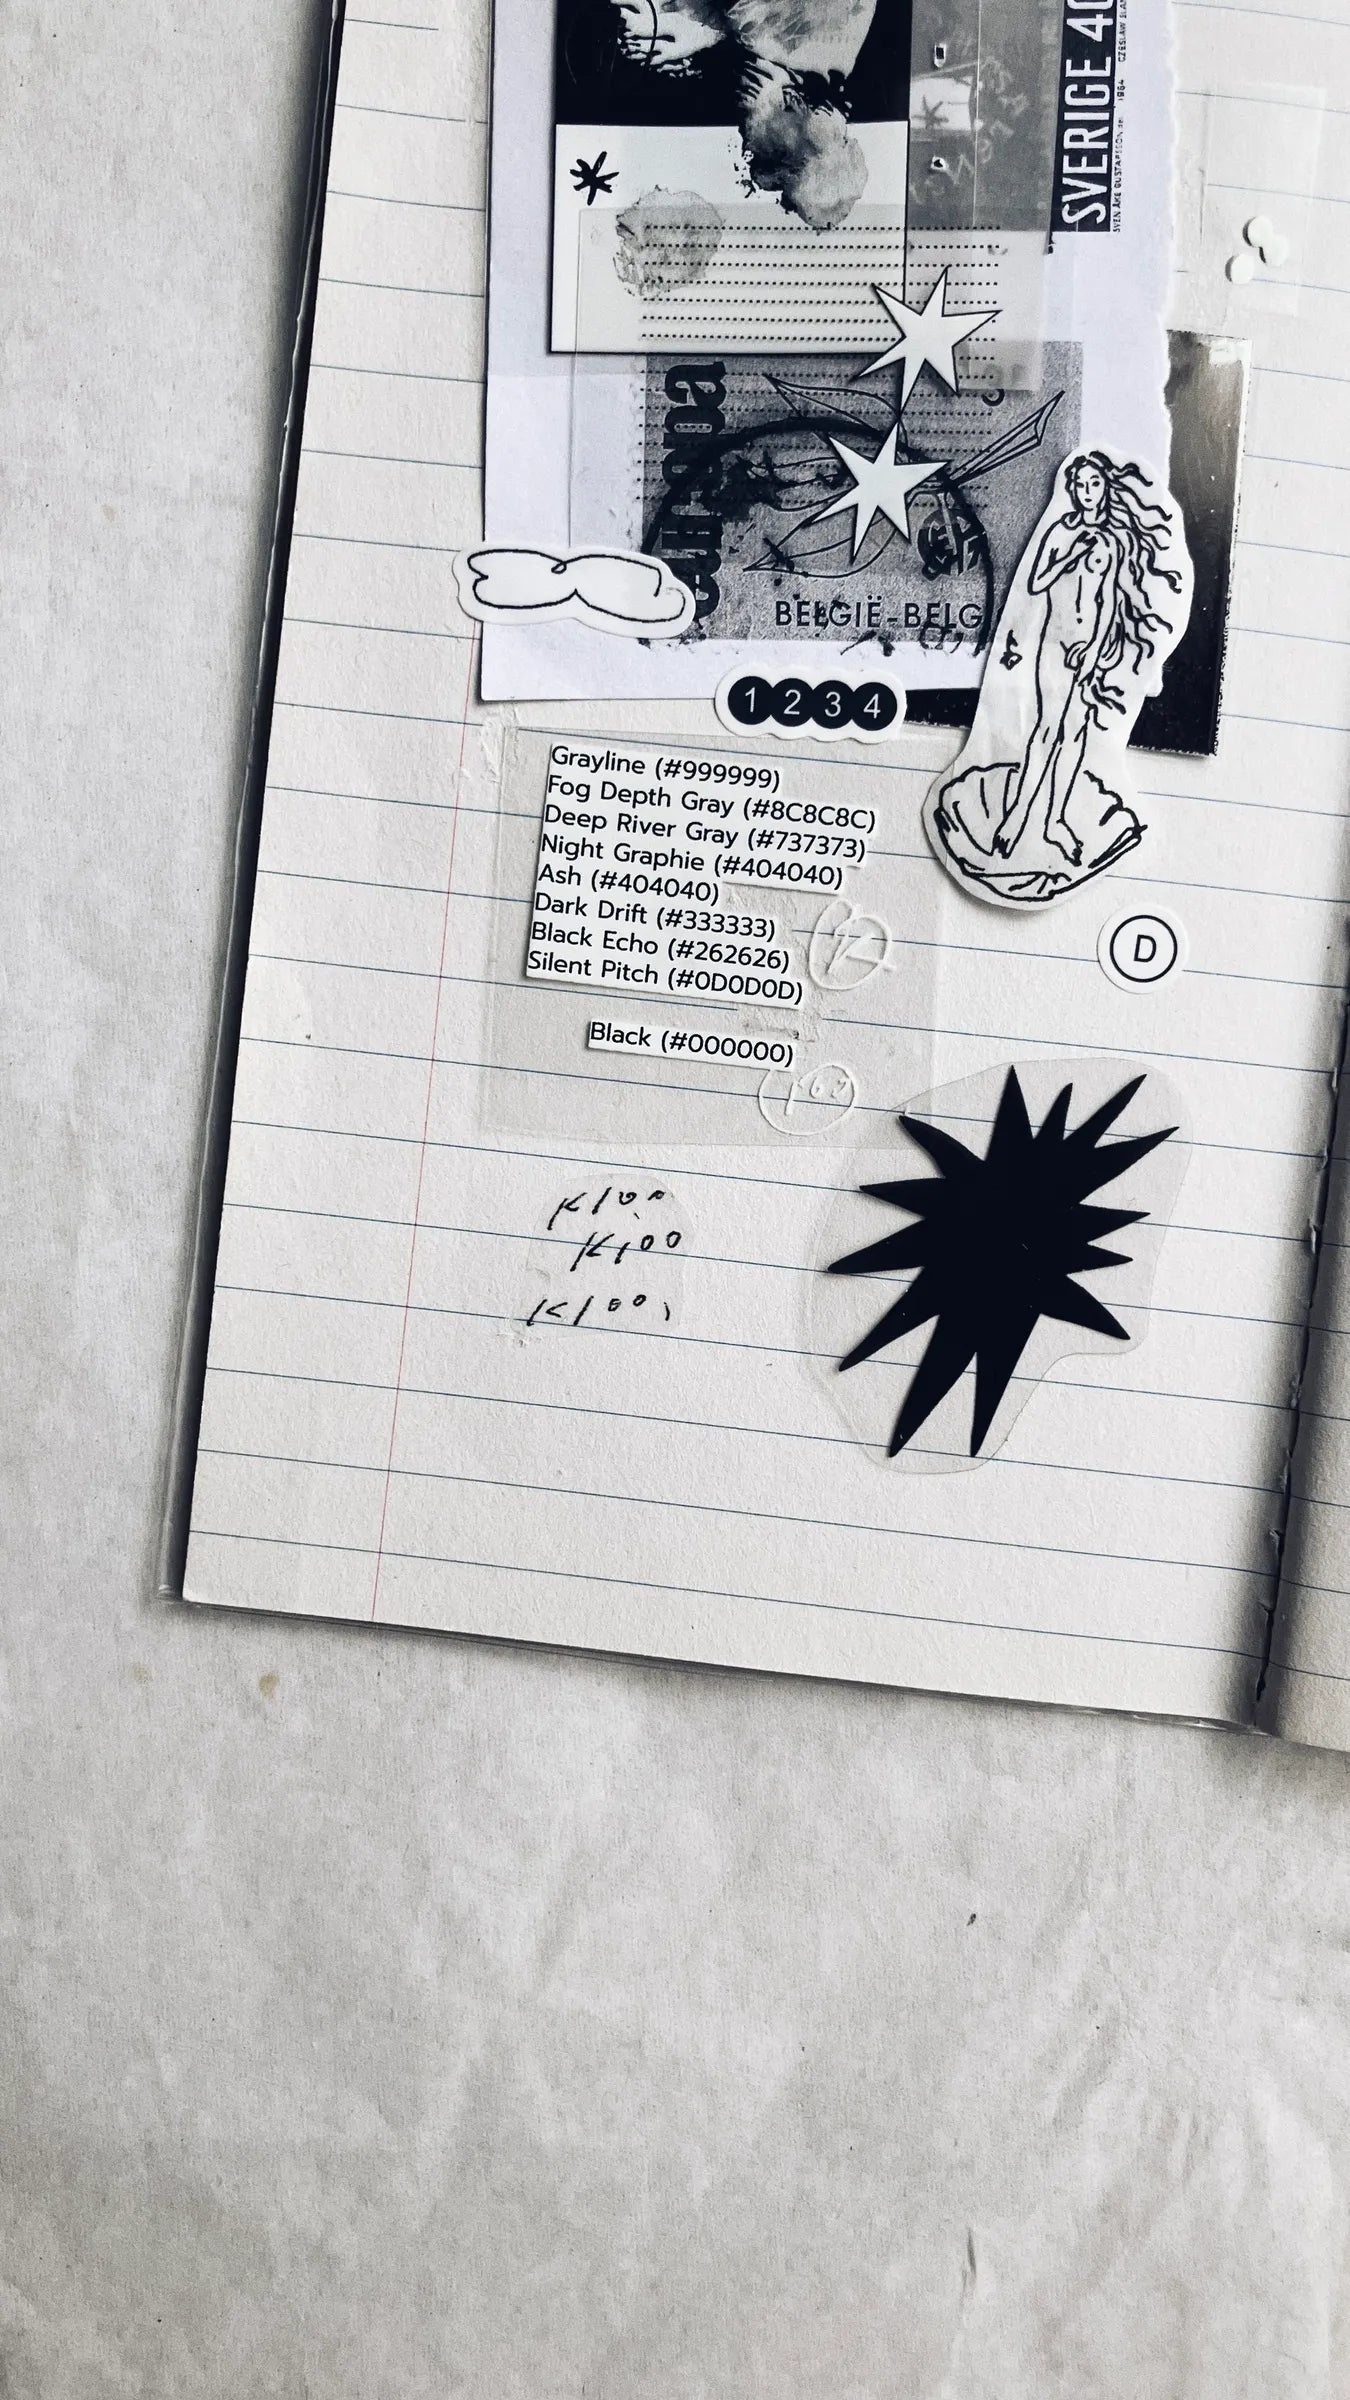 SVERIGE 40
1964
BELGIË-BELG
1 2 3 4
Grayline (#999999)
Fog Depth Gray (#8C8C8C)
Deep River Gray (#737373)
Night Graphie (#404040)
Ash (#404040)
Dark Drift (#333333)
Black Echo (#262626)
Silent Pitch (#0D0D0D)
D
Black (#000000)
K100
K100
K100